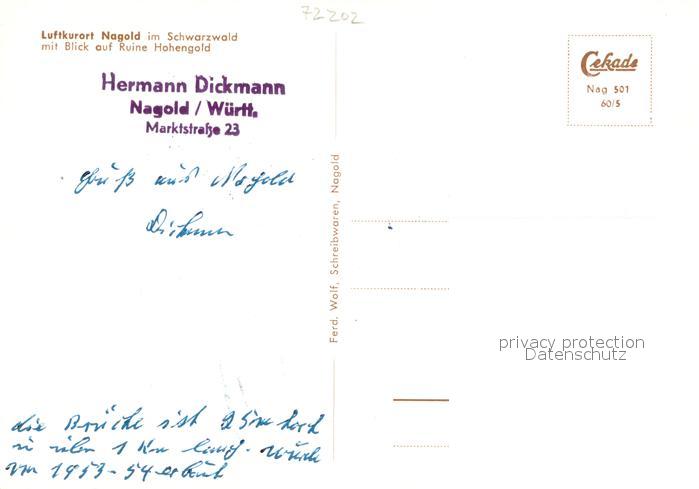 72202
Luftkurort Nagold im Schwarzwald
mit Blick auf Ruine Hohengold
Hermann Dickmann
Nagold / Württ.
Marktstraße 23
Cekade
Nag 501
60/5
Gruß aus Nagold
Dickmann
Ferd. Wolf, Schreibwaren, Nagold
privacy protection
Datenschutz
die Brücke ist 25m hoch
u über 1 Km lang. wurde
von 1953-54 erbaut